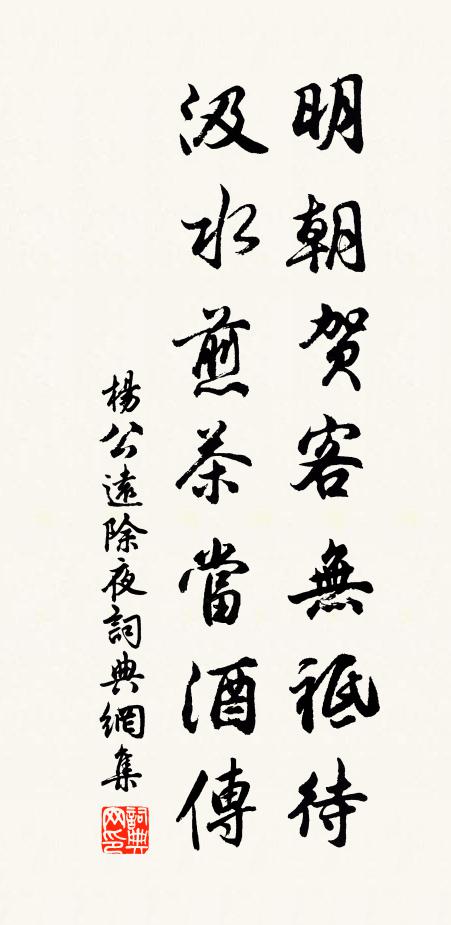 明朝賀客無祗待
汲水煎茶當酒傳
楊公遠除夜詞典網集
詞典網印